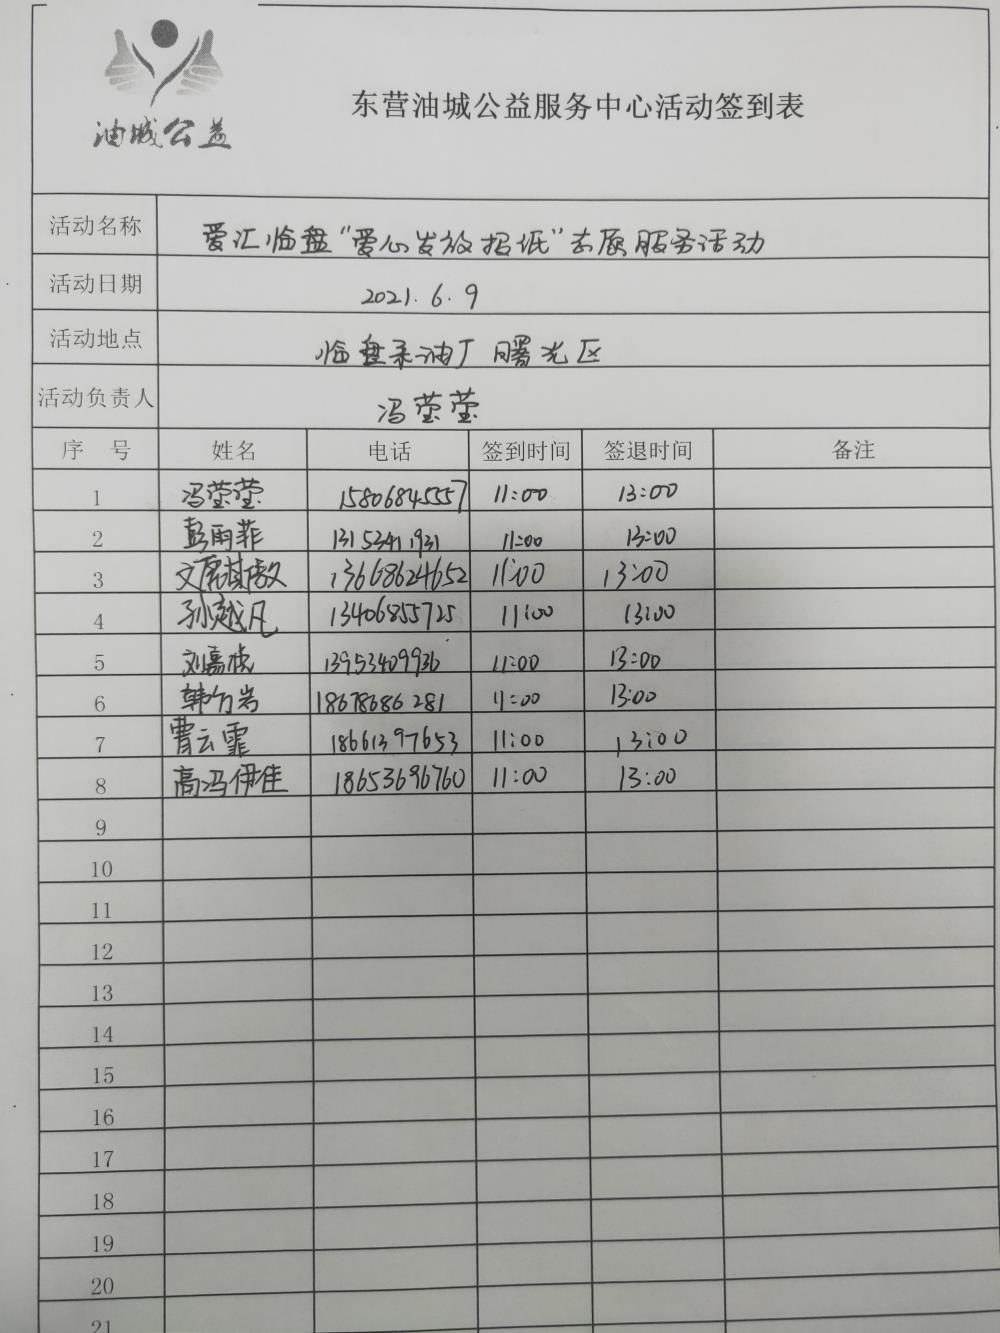 油城公益
东营油城公益服务中心活动签到表
活动名称 爱汇临盘“爱心发放报纸”志愿服务活动
活动日期 2021.6.9
活动地点 临盘采油厂曙光区
活动负责人 冯莹莹
序 号 姓名 电话 签到时间 签退时间 备注
1 冯莹莹 15806845557 11:00 13:00
2 彭雨菲 13153411931 11:00 13:00
3 13668624652 11:00 13:00
4 孙越凡 13406855725 11:00 13:00
5 刘嘉 13953409936 11:00 13:00
6 韩 岩 18678686281 11:00 13:00
7 曹云霏 18661397653 11:00 13:00
8 高冯伊佳 18653696760 11:00 13:00
9
10
11
12
13
14
15
16
17
18
19
20
21